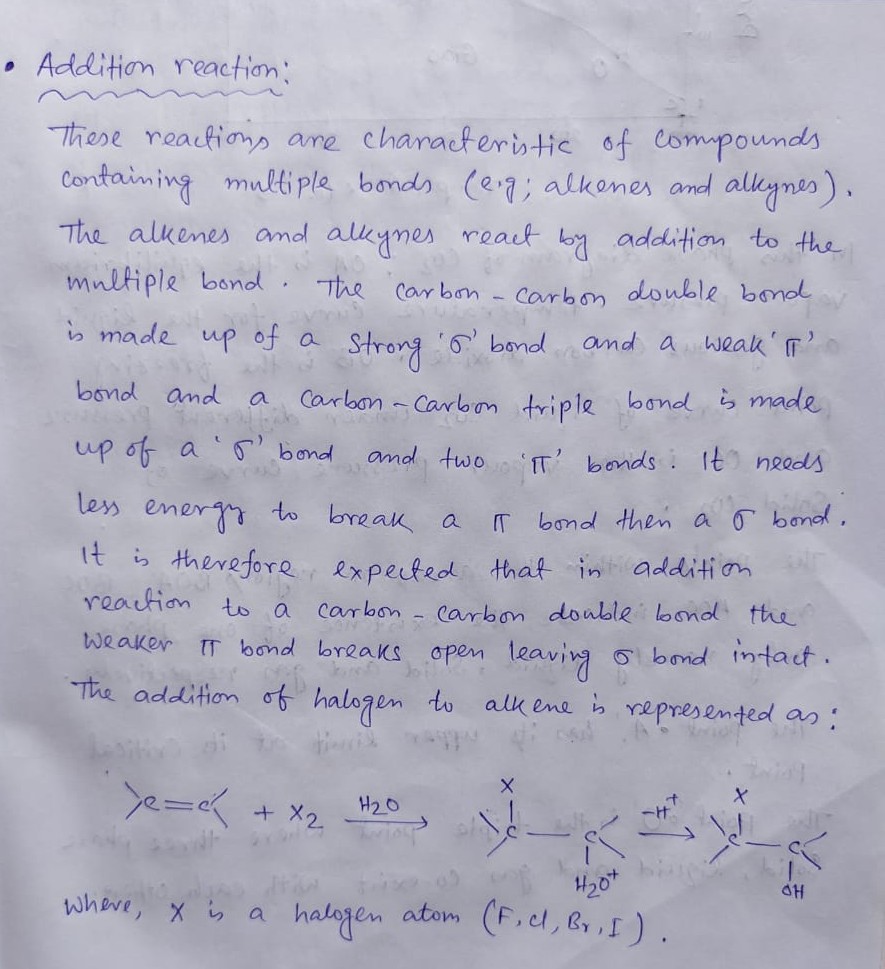 • Addition reaction:
These reactions are characteristic of compounds
containing multiple bonds (e.g; alkenes and alkynes).
The alkenes and alkynes react by addition to the
multiple bond. The carbon-carbon double bond
is made up of a strong 'σ' bond and a weak 'π'
bond and a carbon-carbon triple bond is made
up of a 'σ' bond and two 'π' bonds. It needs
less energy to break a π bond then a σ bond.
It is therefore expected that in addition
reaction to a carbon-carbon double bond the
weaker π bond breaks open leaving σ bond intact.
The addition of halogen to alkene is represented as:
X X
>C=C< + X2 H2O → C—C -H+ → C—C
H2O+ OH
Where, X is a halogen atom (F, Cl, Br, I).